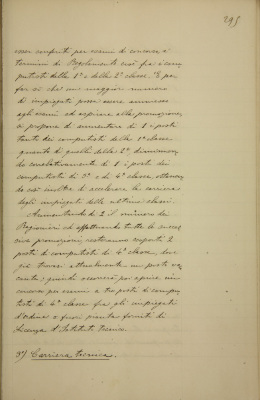 295
esser conferiti per esami di concorso a
termini di Regolamento così fra i com-
putisti della 1ª e della 2ª classe. E per
far sì che un maggior numero
di impiegati possa essere ammesso
agli esami ed aspirare alla promozione,
si propone di aumentare di 1 i posti
tanto dei computisti della 1ª classe
quanto di quelli della 2ª diminuen-
do correlativamente di 1 i posti dei
computisti di 3ª e di 4ª classe, ottenen-
do così inoltre di accelerare la carriera
degli impiegati delle ultime classi.
Aumentando di 2 il numero dei
Ragionieri ed effettuando tutte le succes-
sive promozioni, resteranno scoperti 2
posti di computisti di 4ª classe, dove
già trovasi attualmente un posto va-
cante; quindi occorrerà poi aprire un
concorso per esami a tre posti di compu-
tisti di 4ª classe fra gli impiegati
d'ordine e fuori pianta forniti di
licenza d'Istituto tecnico.
3º) Carriera tecnica.